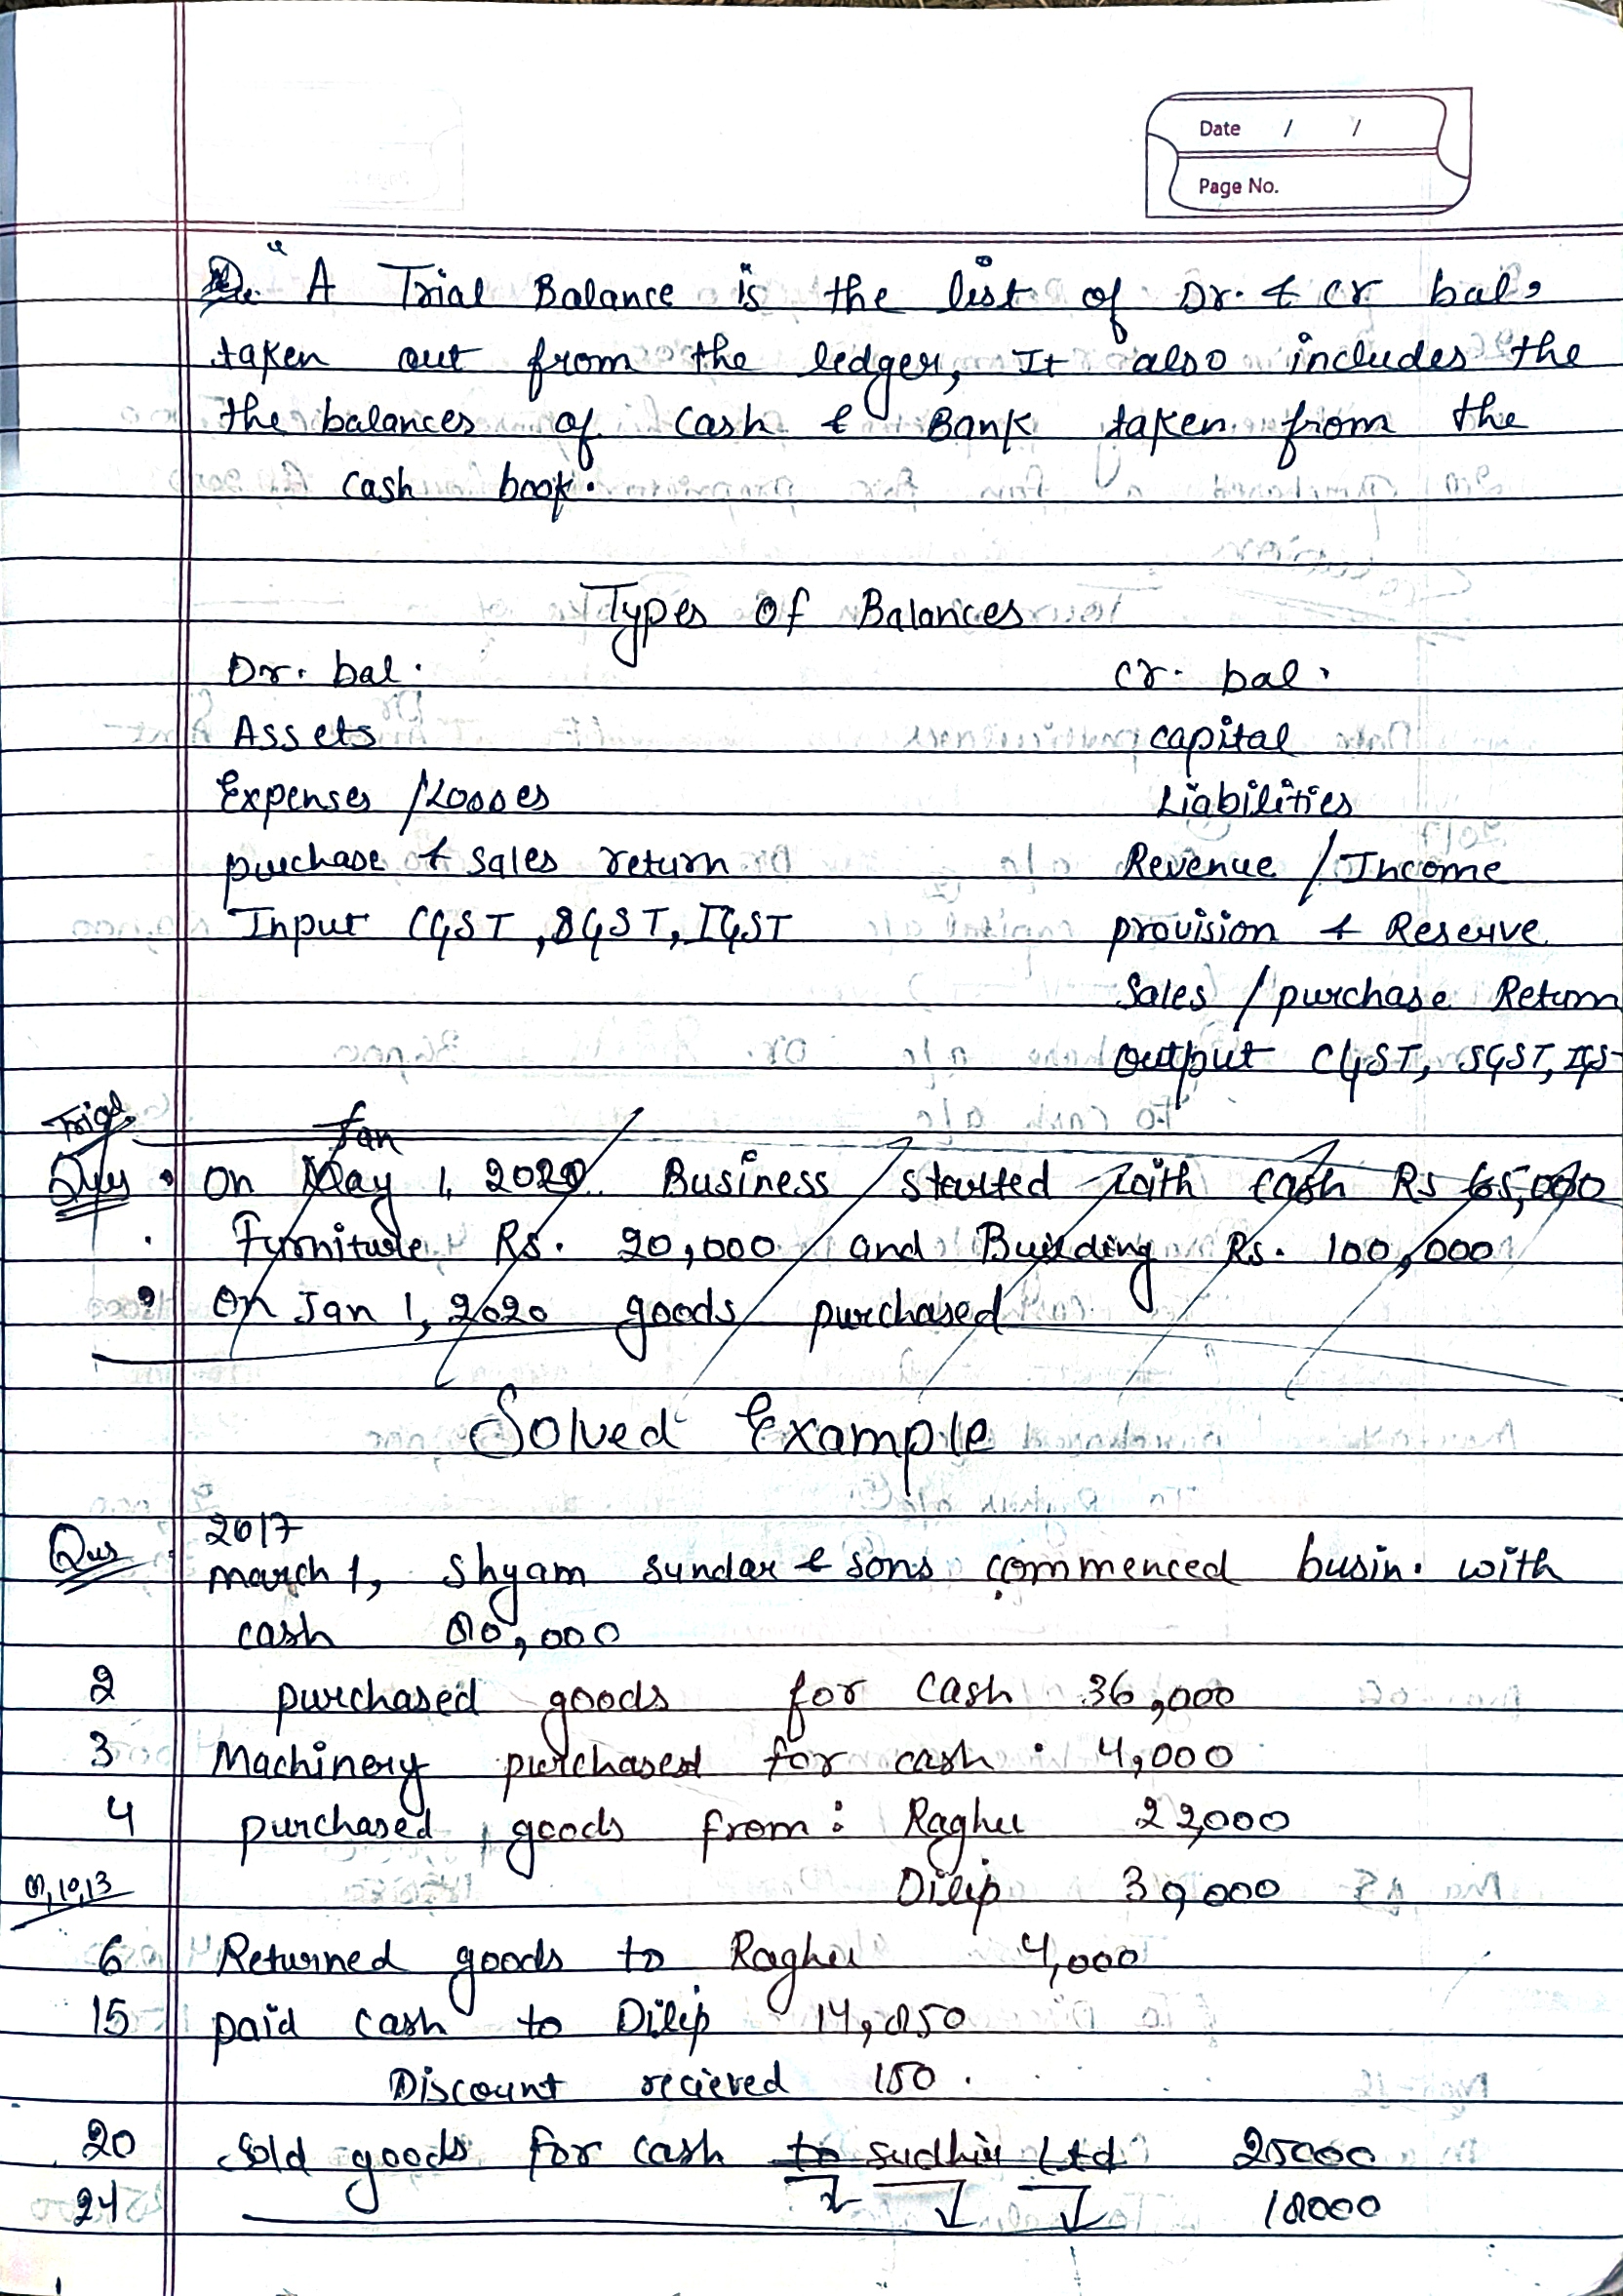 Date / /
Page No.
" A Trial Balance is the list of Dr. & cr bal,
taken out from the ledger, It also includes the
the balances of cash & Bank taken from the
cash book.
Types Of Balances
Dr. bal. cr. bal.
Assets capital
Expenses /Losses Liabilities
purchase & sales return Revenue / Income
Input CGST, SGST, IGST provision & Reserve
Sales / purchase Return
output CGST, SGST, IGS
Trial
Jan
Ques • On May 1, 2020 Business started with cash Rs 65,000
• Furniture Rs. 20,000 and Building Rs. 100,000
• On Jan 1, 2020 goods purchased
Solved Example
2017
Qus march 1, shyam sundar & sons commenced busin. with
cash 80,000
2 purchased goods for cash 36,000
3 Machinery purchased for cash : 4,000
4 purchased goods from : Raghu 22,000
Dilip 30,000
6 Returned goods to Raghu 4,000
15 paid cash to Dilip 14,850
Discount recieved 150.
20 Sold goods for cash to sudhir Ltd 25000
24 18000